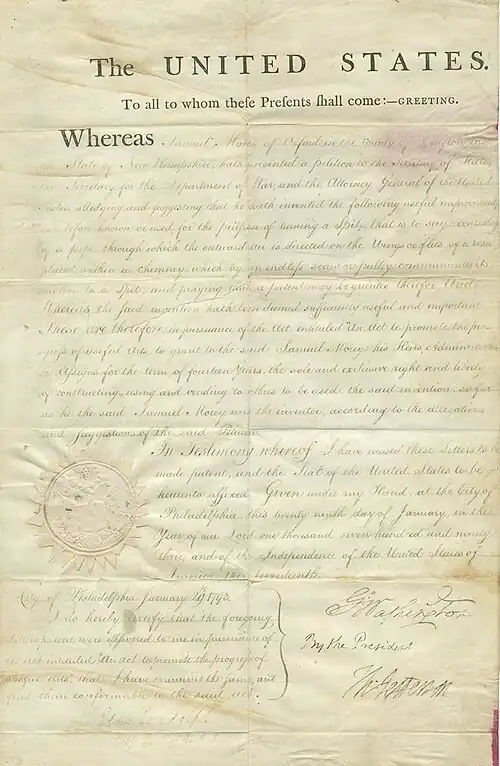 The UNITED STATES.
To all to whom theſe Preſents ſhall come:—GREETING.
Whereas Samuel Morey of Orford in the County of Grafton in
the State of New Hampshire, hath presented a Petition to the Secretary of State,
the Secretary for the Department of War, and the Attorney General of the United
States, alledging and suggesting that he hath invented the following useful improvement
not before known or used, for the purpose of turning a Spit, that is to say, consisting
of a pipe through which the outward air is directed on the Wings or flies of a
placed within a chimney, which by an endless or pulley communicates its
motion to a Spit, and praying that a patent may be granted therefor, And
Whereas the said invention hath been deemed sufficiently useful and important
These are therefore in pursuance of the Act intituled "An Act to promote the pro-
gress of useful Arts, to grant to the said Samuel Morey his Heirs, Administrators
or Assigns for the term of fourteen Years, the sole and exclusive right and liberty
of constructing, using and vending to others to be used the said invention so far
as he the said Samuel Morey was the inventor, according to the allegations
and suggestions of the said Petition.
In Testimony whereof I have caused these Letters to be
made patent, and the Seal of the United States to be
hereunto affixed Given under my Hand, at the City of
Philadelphia this twenty ninth day of January, in the
Year of our Lord one thousand seven hundred and ninety
three, and of the Independence of the United States of
America the Seventeenth.
Go Washington
By the President
Th Jefferson
City of Philadelphia January 29. 1793.
I do hereby certify that the foregoing
Letters patent were delivered to me in pursuance of
the act intituled "An act to promote the progress of
useful arts," that I have examined the same, and
find them conformable to the said act.
Edm: Randolph